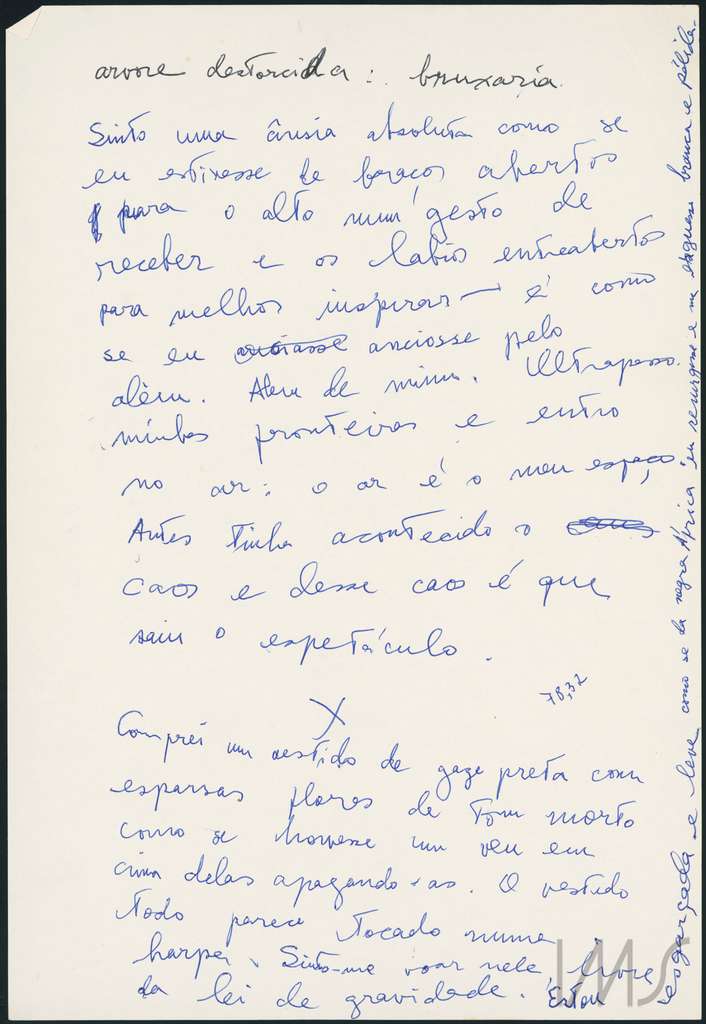 arvore destorcida: bruxaria.
Sinto uma ânsia absoluta como se
eu estivesse de braços abertos
para o alto num gesto de
receber e os labios entreabertos
para melhor inspirar — é como
se eu ansiasse anciosse pelo
além. Alem de mim. Ultrapasso
minhas fronteiras e entro
no ar: o ar é o meu espaço,
Antes tinha acontecido o
caos e desse caos é que
saiu o espetáculo.
78,32
X
Comprei um vestido de gaze preta com
esparsas flores de tom morto
como se houvesse um véu em
cima delas apagando-as. O vestido
todo parece tocado numa
harpa. Sinto-me voar nele livre
da lei de gravidade. Estou
esgarçada e leve como se da negra África eu resurgisse e me erguesse branca e pálida.
IMS